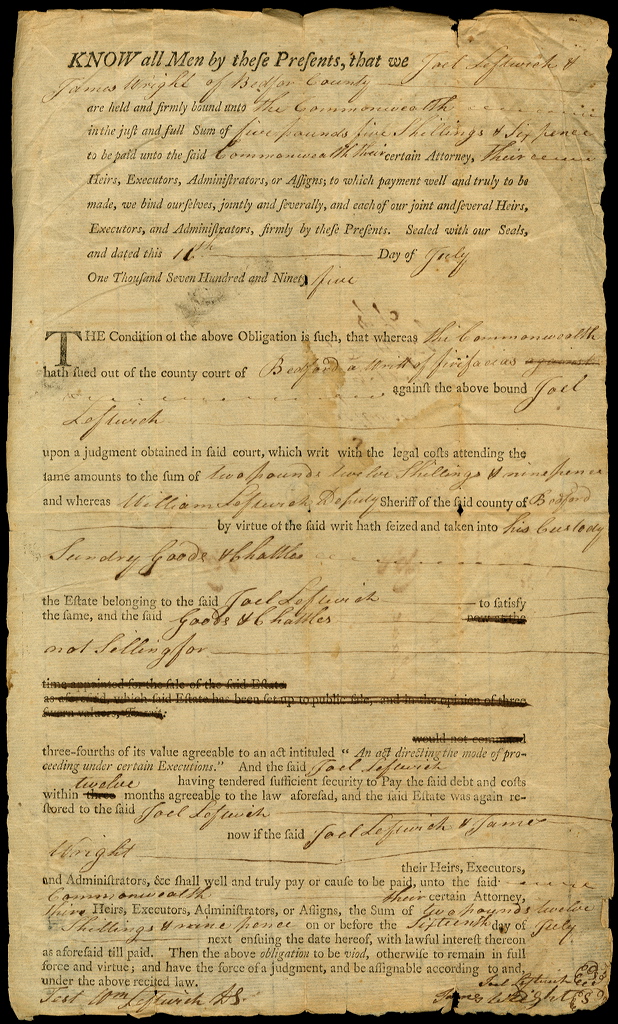 KNOW all Men by these Presents, that we Joel Leftwich &
James Wright of Bedford County
are held and firmly bound unto the Commonwealth
in the just and full Sum of five pounds five Shillings & Six pence
to be paid unto the said Commonwealth their certain Attorney, their
Heirs, Executors, Administrators, or Assigns; to which payment well and truly to be
made, we bind ourselves, jointly and severally, and each of our joint and several Heirs,
Executors, and Administrators, firmly by these Presents. Sealed with our Seals,
and dated this 11th Day of July
One Thousand Seven Hundred and Ninety five
THE Condition of the above Obligation is such, that whereas the Commonwealth
hath sued out of the county court of Bedford a Writ of firifacias against
against the above bound Joel
Leftwich
upon a judgment obtained in said court, which writ with the legal costs attending the
same amounts to the sum of two pounds twelve Shillings & nine pence
and whereas William Leftwich Deputy Sheriff of the said county of Bedford
by virtue of the said writ hath seized and taken into his Custody
Sundry Goods & Chattles
the Estate belonging to the said Joel Leftwich to satisfy
the same, and the said Goods & Chattles now at the
not Selling for
time appointed for the sale of the said Estate
as aforesaid, which said Estate has been set up to public sale, and in the opinion of three
would not command
three-fourths of its value agreeable to an act intituled " An act directing the mode of pro-
ceeding under certain Executions." And the said Joel Leftwich
having tendered sufficient security to Pay the said debt and costs
twelve
within three months agreeable to the law aforesad, and the said Estate was again re-
stored to the said Joel Leftwich
now if the said Joel Leftwich & James
Wright
their Heirs, Executors,
and Administrators, &c shall well and truly pay or cause to be paid, unto the said
Commonwealth their certain Attorney,
their Heirs, Executors, Administrators, or Assigns, the Sum of two pounds twelve
Shillings & nine pence on or before the Sixteenth day of July
next ensuing the date hereof, with lawful interest thereon
as aforesaid till paid. Then the above obligation to be viod, otherwise to remain in full
force and virtue; and have the force of a judgment, and be assignable according to and,
under the above recited law.
Joel Leftwich
Test Wm Leftwich DS. James Wright